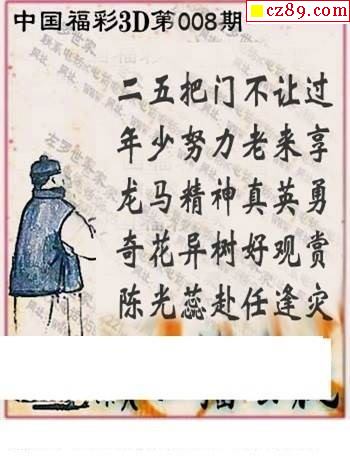 cz89.com
中国福彩3D第008期
二五把门不让过
年少努力老来享
龙马精神真英勇
奇花异树好观赏
陈光蕊赴任逢灾